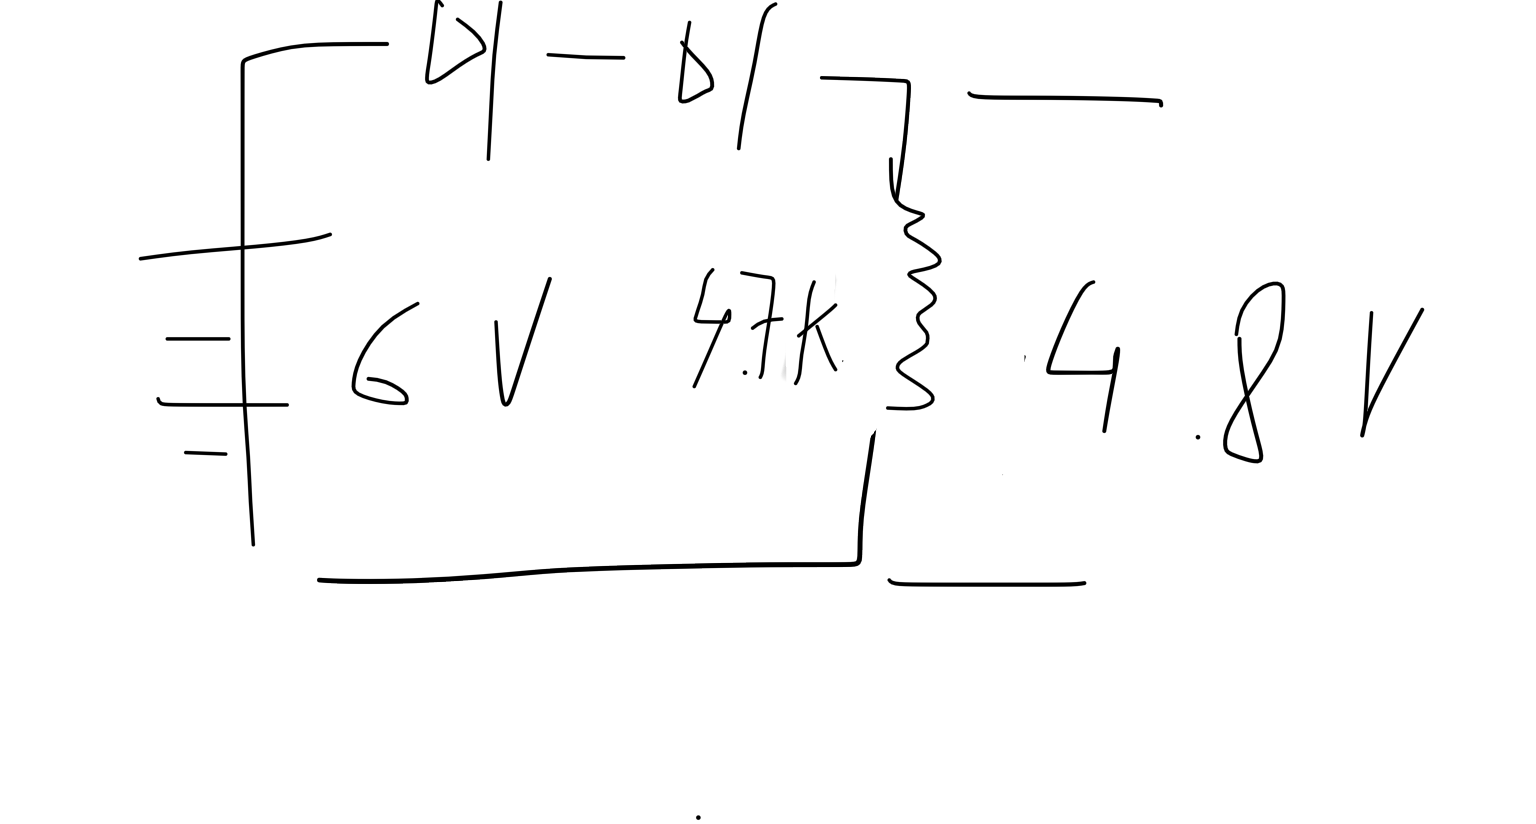 6 V
4.7K
4.8 V